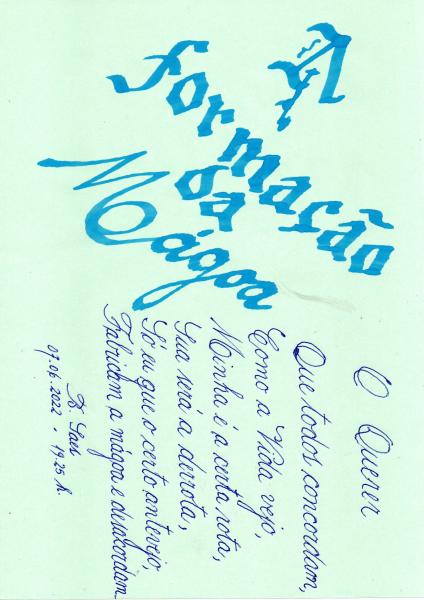 A
Formação
da
Mágoa
O Querer
Que todos concordam,
Como a Vida vejo,
Minha é a certa rota,
Sua será a derrota,
Só eu que o certo antevejo,
Fabricam a mágoa e desacordam
A. Saes
07.06.2022 - 19.25 h.